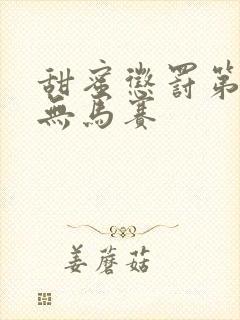 甜蜜懲罰第
無馬賽
姜蘑菇